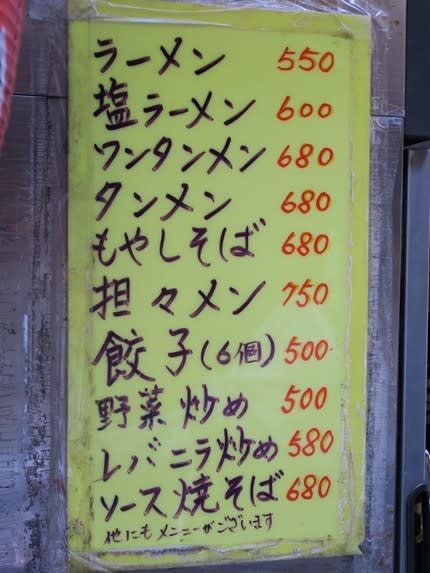 ラーメン 550
塩ラーメン 600
ワンタンメン 680
タンメン 680
もやしそば 680
担々メン 750
餃子(6個) 500
野菜炒め 500
レバニラ炒め 580
ソース焼そば 680
他にもメニューがございます